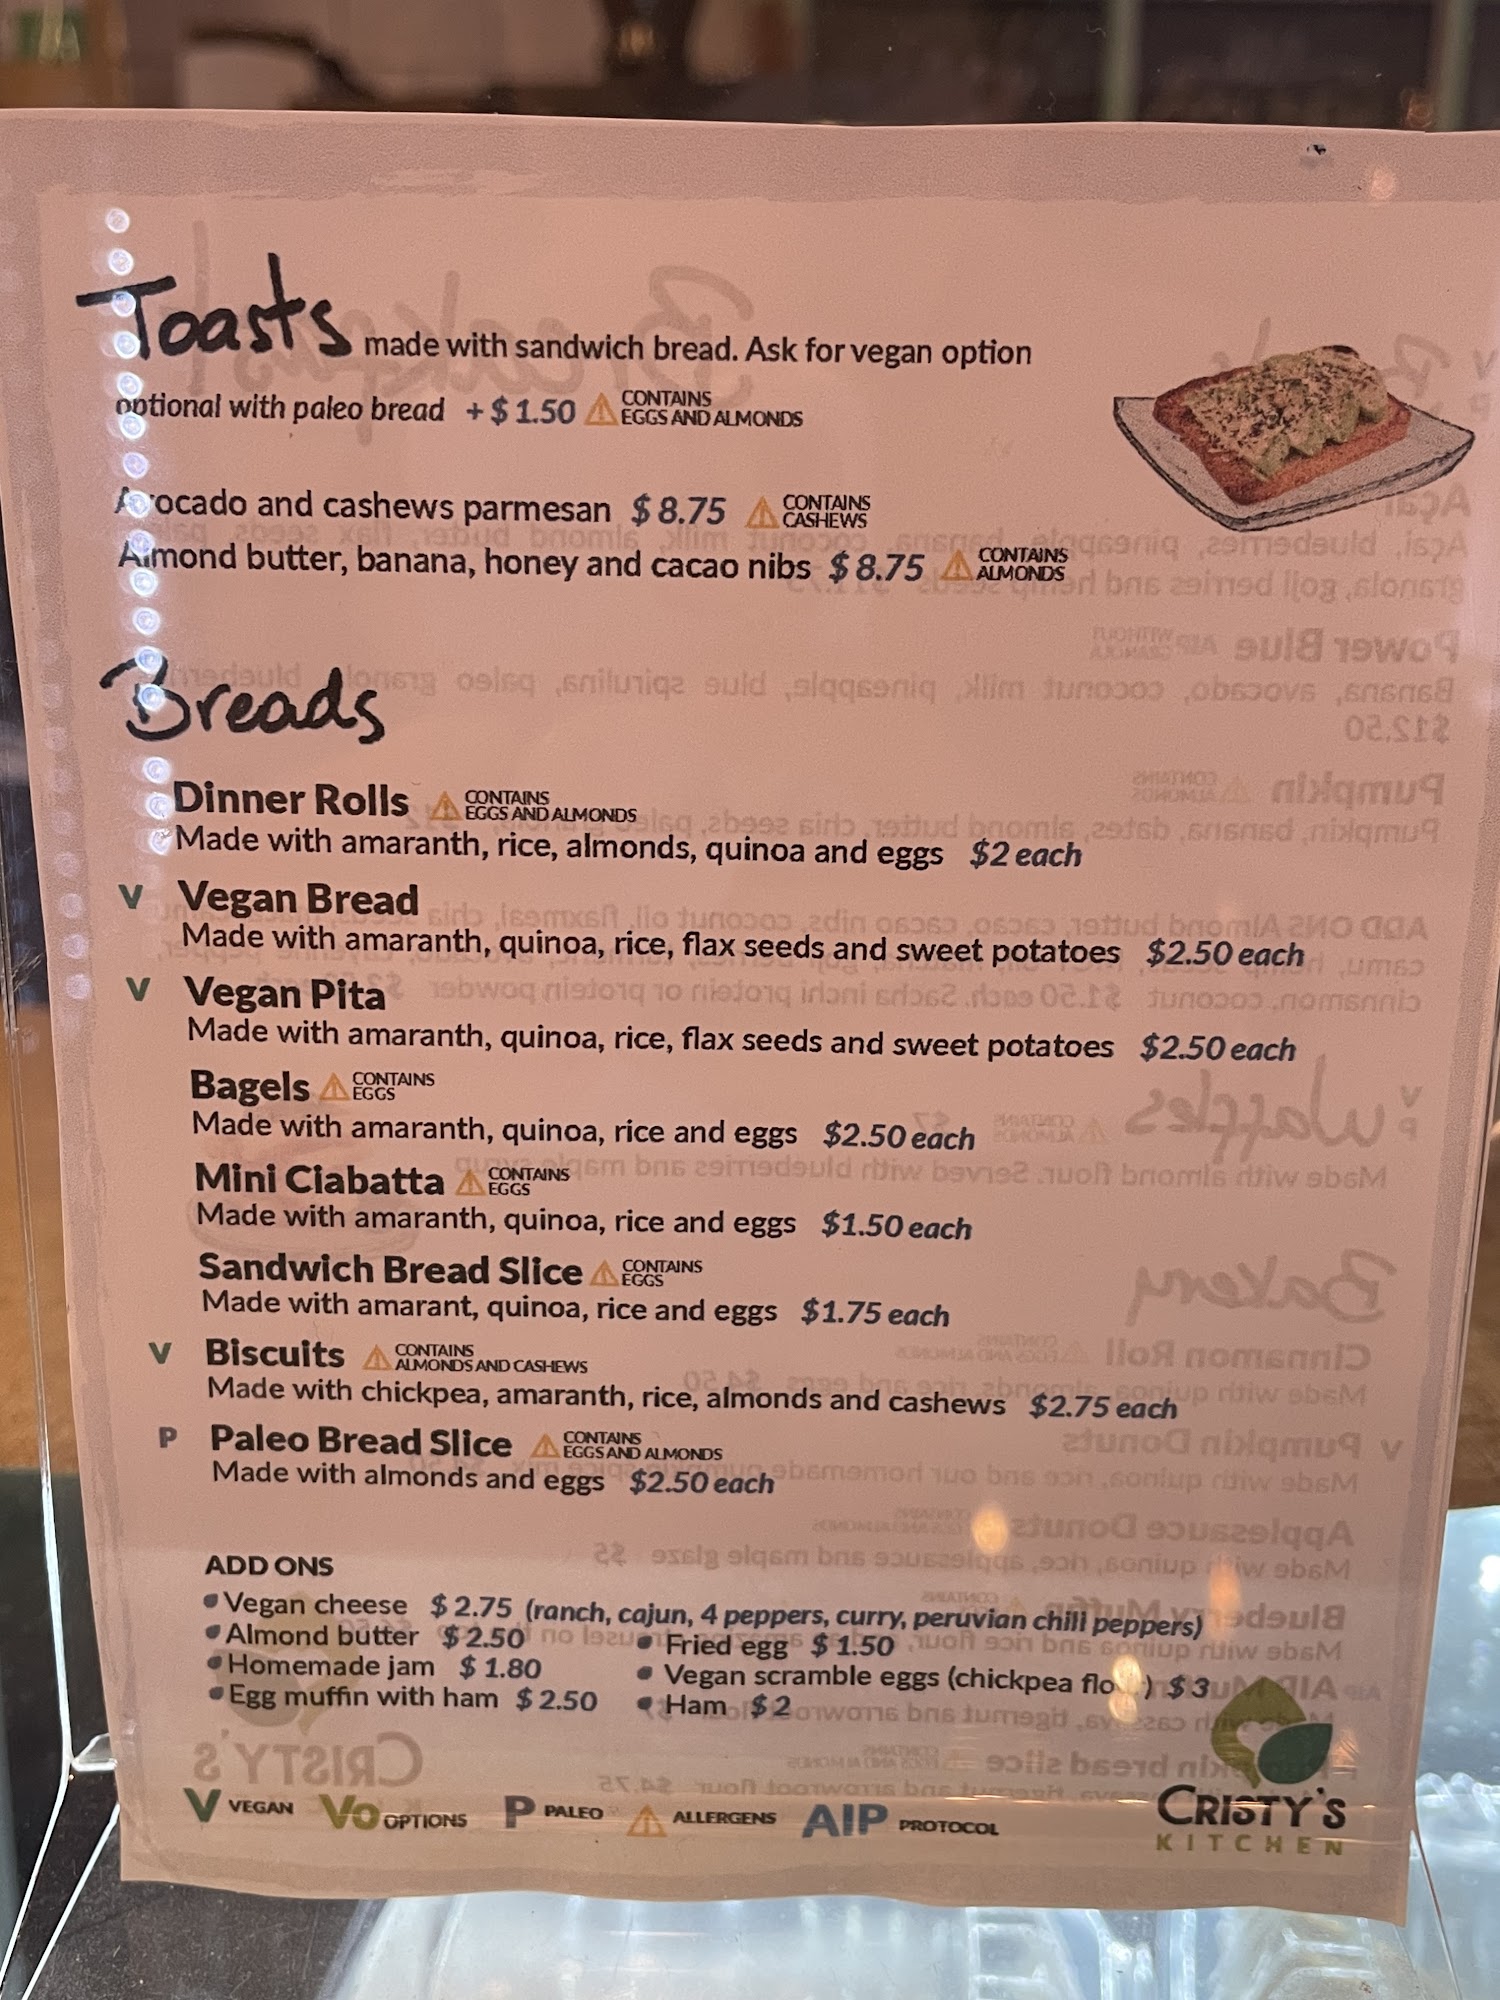 Toasts made with sandwich bread. Ask for vegan option
optional with paleo bread + $1.50 CONTAINS EGGS AND ALMONDS
Avocado and cashews parmesan $8.75 CONTAINS CASHEWS
Almond butter, banana, honey and cacao nibs $8.75 CONTAINS ALMONDS
Breads
Dinner Rolls CONTAINS EGGS AND ALMONDS
Made with amaranth, rice, almonds, quinoa and eggs $2 each
V Vegan Bread
Made with amaranth, quinoa, rice, flax seeds and sweet potatoes $2.50 each
V Vegan Pita
Made with amaranth, quinoa, rice, flax seeds and sweet potatoes $2.50 each
Bagels CONTAINS EGGS
Made with amaranth, quinoa, rice and eggs $2.50 each
Mini Ciabatta CONTAINS EGGS
Made with amaranth, quinoa, rice and eggs $1.50 each
Sandwich Bread Slice CONTAINS EGGS
Made with amarant, quinoa, rice and eggs $1.75 each
V Biscuits CONTAINS ALMONDS AND CASHEWS
Made with chickpea, amaranth, rice, almonds and cashews $2.75 each
P Paleo Bread Slice CONTAINS EGGS AND ALMONDS
Made with almonds and eggs $2.50 each
ADD ONS
Vegan cheese $2.75 (ranch, cajun, 4 peppers, curry, peruvian chili peppers)
Almond butter $2.50
Homemade jam $1.80
Egg muffin with ham $2.50
Fried egg $1.50
Vegan scramble eggs (chickpea ) $3
Ham $2
V VEGAN VO OPTIONS P PALEO ALLERGENS AIP PROTOCOL
CRISTY'S
KITCHEN